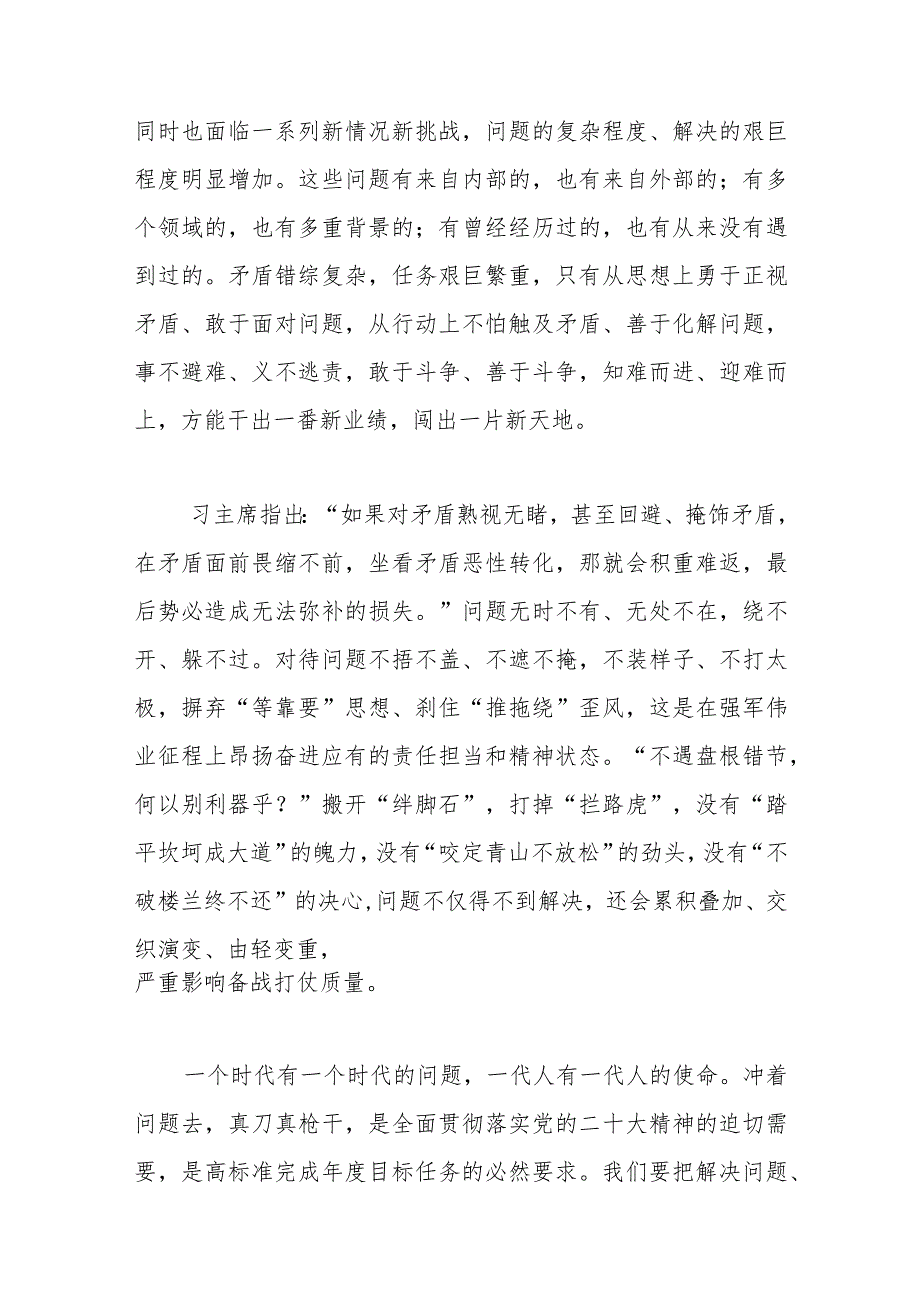 同时也面临一系列新情况新挑战，问题的复杂程度、解决的艰巨
程度明显增加。这些问题有来自内部的，也有来自外部的；有多
个领域的，也有多重背景的；有曾经经历过的，也有从来没有遇
到过的。矛盾错综复杂，任务艰巨繁重，只有从思想上勇于正视
矛盾、敢于面对问题，从行动上不怕触及矛盾、善于化解问题，
事不避难、义不逃责，敢于斗争、善于斗争，知难而进、迎难而
上，方能干出一番新业绩，闯出一片新天地。
习主席指出：“如果对矛盾熟视无睹，甚至回避、掩饰矛盾，
在矛盾面前畏缩不前，坐看矛盾恶性转化，那就会积重难返，最
后势必造成无法弥补的损失。”问题无时不有、无处不在，绕不
开、躲不过。对待问题不捂不盖、不遮不掩，不装样子、不打太
极，摒弃“等靠要”思想、刹住“推拖绕”歪风，这是在强军伟
业征程上昂扬奋进应有的责任担当和精神状态。“不遇盘根错节，
何以别利器乎？”搬开“绊脚石”，打掉“拦路虎”，没有“踏
平坎坷成大道”的魄力，没有“咬定青山不放松”的劲头，没有“不
破楼兰终不还”的决心,问题不仅得不到解决，还会累积叠加、交
织演变、由轻变重，
严重影响备战打仗质量。
一个时代有一个时代的问题，一代人有一代人的使命。冲着
问题去，真刀真枪干，是全面贯彻落实党的二十大精神的迫切需
要，是高标准完成年度目标任务的必然要求。我们要把解决问题、